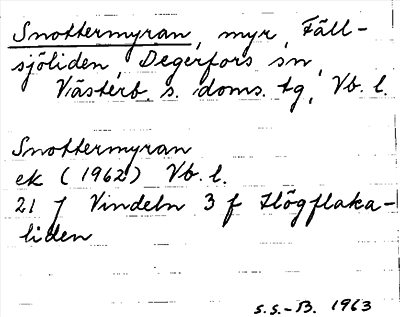 Snottermyran, myr, Fäll-
sjöliden, Degerfors sn,
Västerb. s. doms. tg, Vb. l.
Snottermyran
ek (1962) Vb. l.
21 J Vindeln 3 f Högflaka-
liden
S.S.-B. 1963